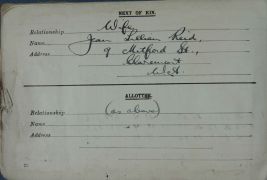 NEXT OF KIN.
Relationship Wife
Name Jean Lilian Reid,
Address 9 Mitford St.,
Claremont
W.A.
ALLOTTEE.
Relationship (as above)
Name
Address